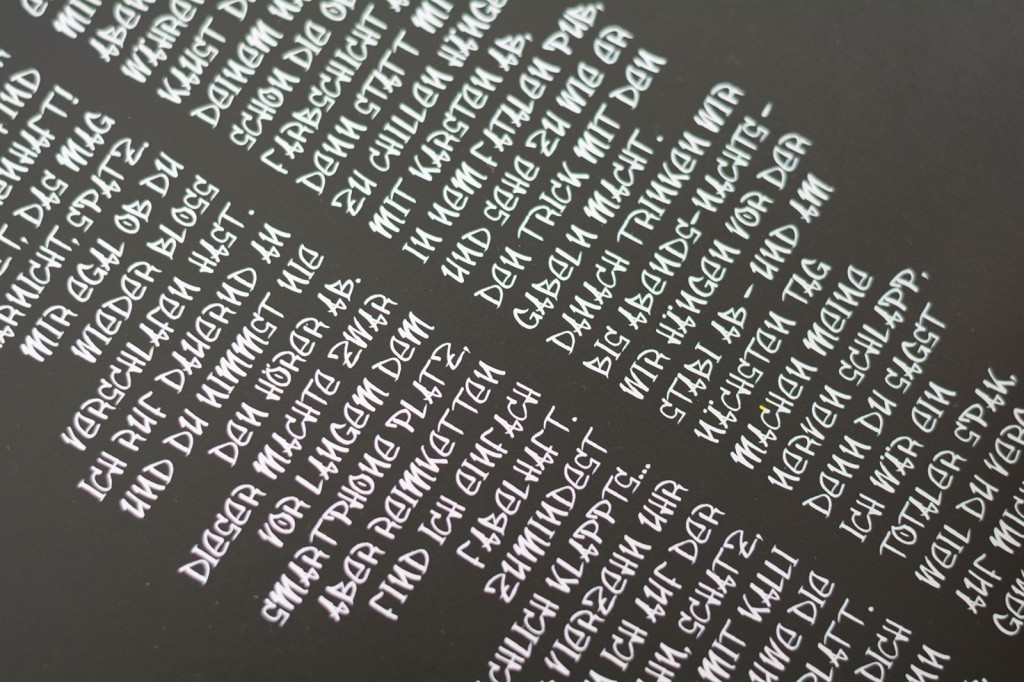 MIR EGAL OB DU
WIEDER BLOSS
VERSCHLAFEN HAST.
ICH RUF DAUERND AN
UND DU NIMMST NIE
DEN HÖRER AB.
DIESER MACHTE ZWAR
VOR LANGEM DEM
SMARTPHONE PLATZ,
ABER REIMKETTEN
FIND ICH EINFACH
FABELHAFT.
ZUMINDEST
KLAPPTS...
VIERZEHN UHR
ICH AUF DER
SCHATZ,
MIT KALLI
DIE
DICH
KANST
DEINEM
SCHON DIE
FARBSCHICHT
DENN STATT
ZU CHILLEN
MIT KARSTEN AB,
IN NEM FATALEN PUB,
UND SEHE ZU WIE ER
DEN TRICK MIT DEN
GABELN MACHT.
DANACH TRINKEN WIR
BIS ABENDS-NACHTS-
WIR HÄNGEN VOR DER
STABI AB - UND AM
NÄCHSTEN TAG
MACHEN MEINE
NERVEN SCHLAPP,
DENN DU SAGST
ICH WÄR EIN
TOTALER SPAK,
WEIL DU
AUF